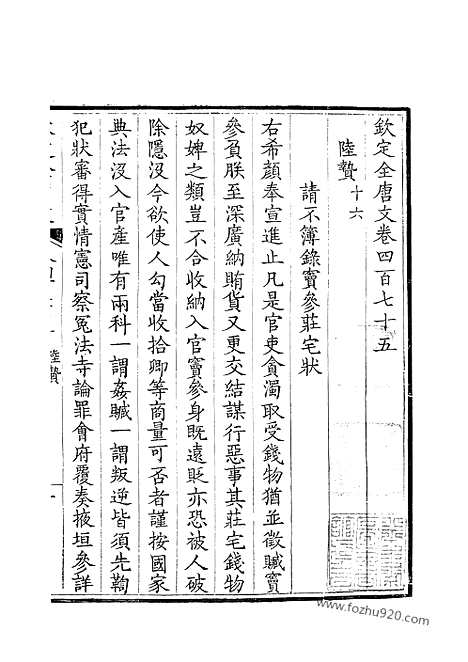 欽定全唐文卷四百七十五
陸贄十六
請不簿錄竇參莊宅狀
右希顏奉宣進止凡是官吏貪濁取受錢物猶並徵贓竇
參負朕至深廣納賄貨又更交結謀行惡事其莊宅錢物
奴婢之類豈不合收納入官竇參身既遠貶亦恐被人破
除隱沒今欲使人勾當收拾卿等商量可否者謹按國家
典法沒入官產唯有兩科一謂姦贓一謂叛逆皆須先鞫
犯狀審得實情憲司察冤法寺論罪會府覆奏掖垣參詳
陸贄
www.fozhu920.com